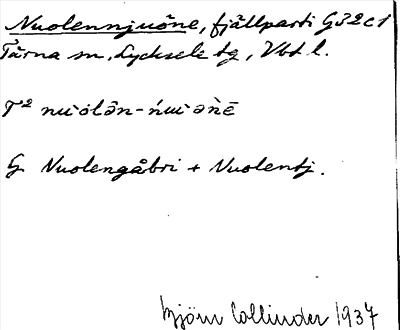 Nuolennjuöne, fjällparti G32c1
Tärna sn, Lycksele tg, Vbt l.
T² nu·ólə̄n-ńɯ·əǹē
G Nuolengåbri + Nuolentj.
Björn Collinder 1937